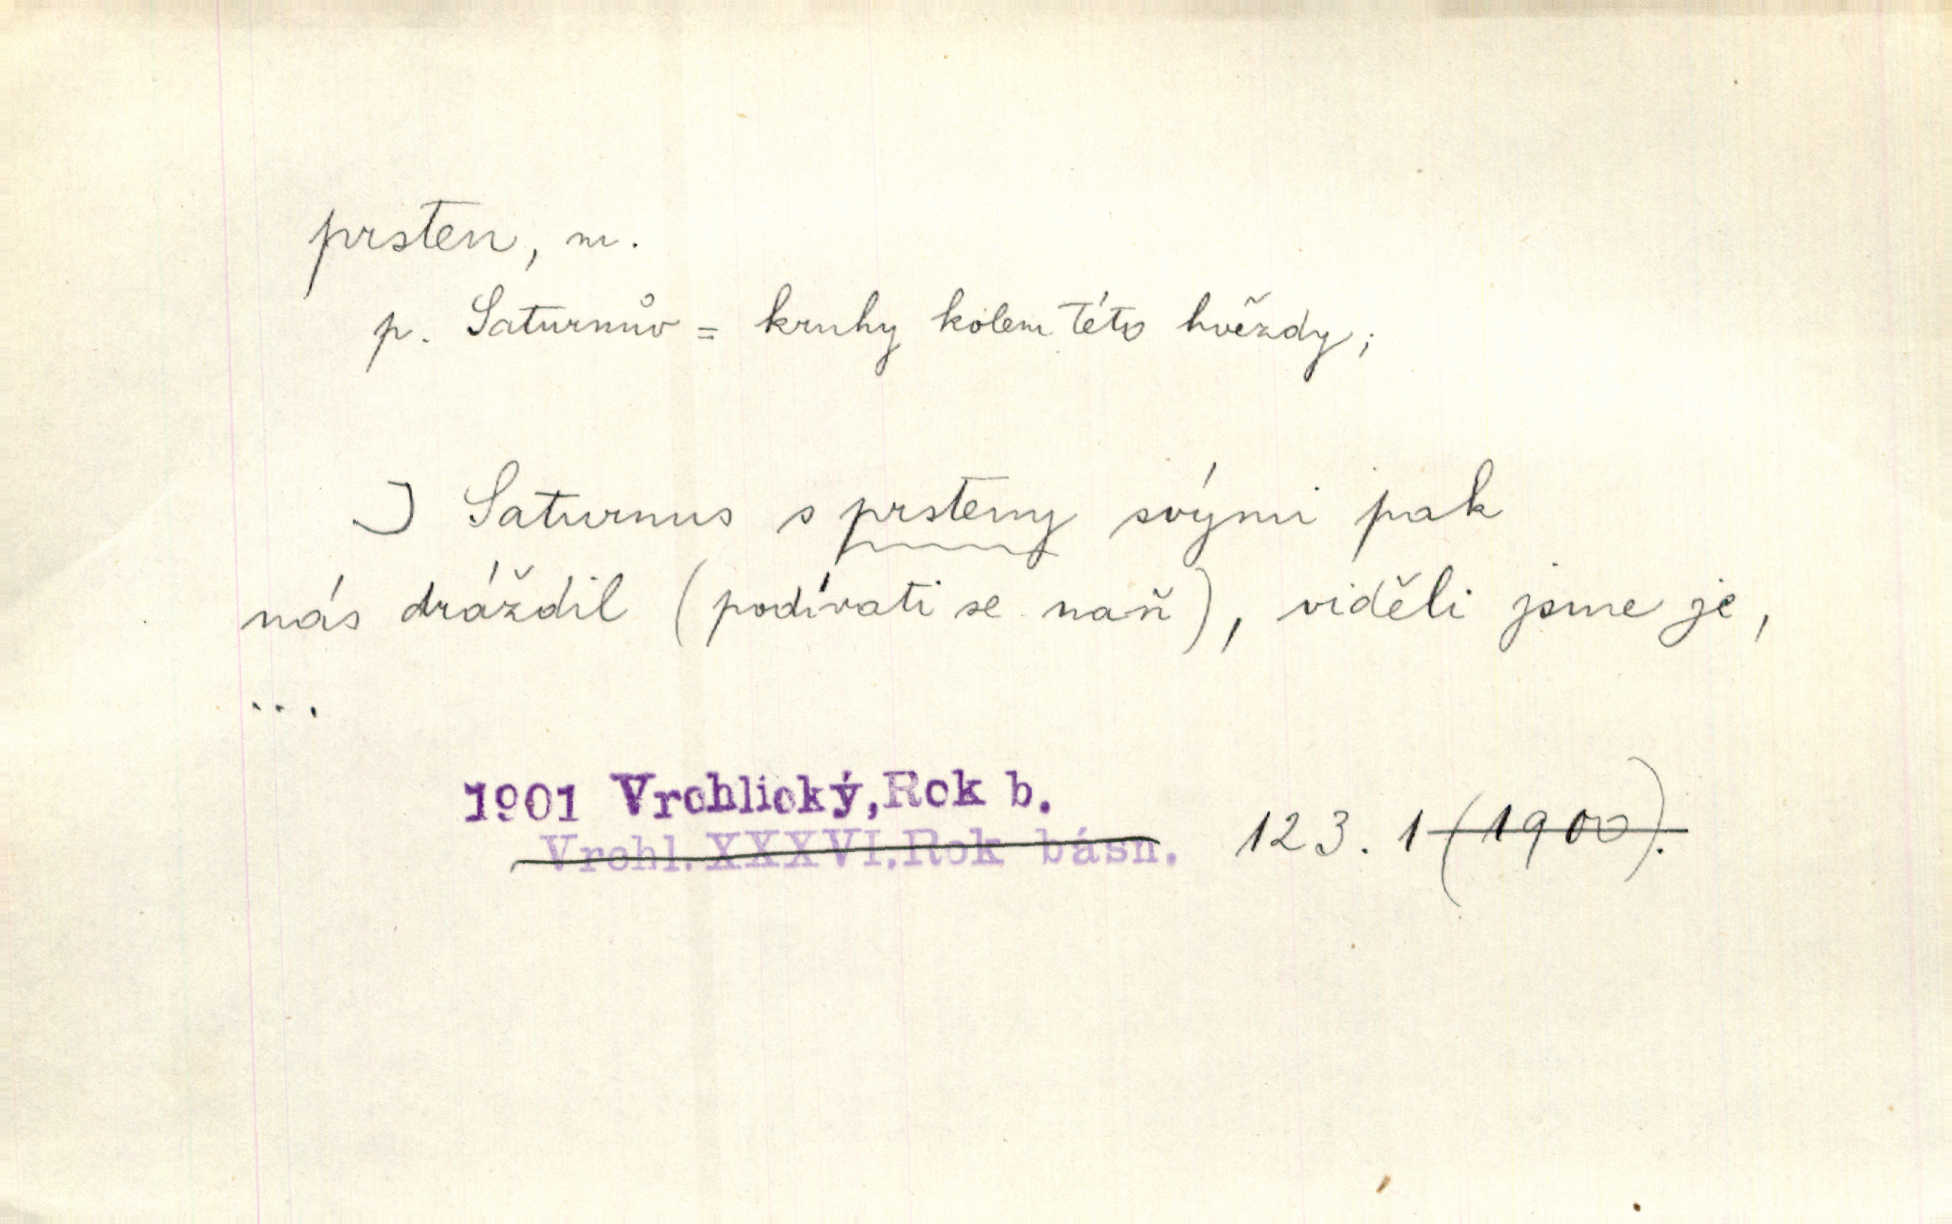 prsten, m.
p. Saturnův = kruhy kolem této hvězdy;
Saturnus s prsteny svými pak
nás dráždil (podívati se naň), viděli jsme je,
...
1901 Vrchlický, Rok b.
Vrchl. XXXVI. Rok básn. 123. 1 (1900).